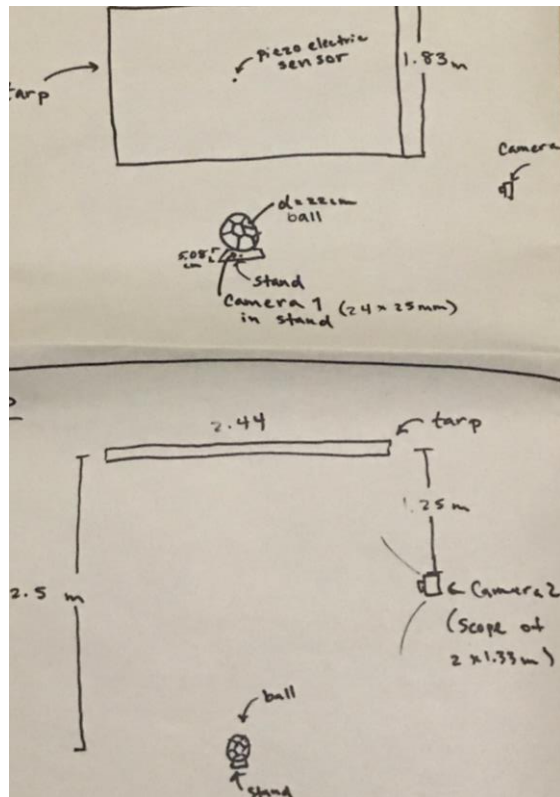 piezo electric
sensor
1.83 m
tarp
Camera
d=22cm
ball
5.08
cm
stand
Camera 1 (24 x 25mm)
in stand
2.44
tarp
1.25 m
2.5 m
Camera 2
(Scope of
2 x 1.33m)
ball
stand